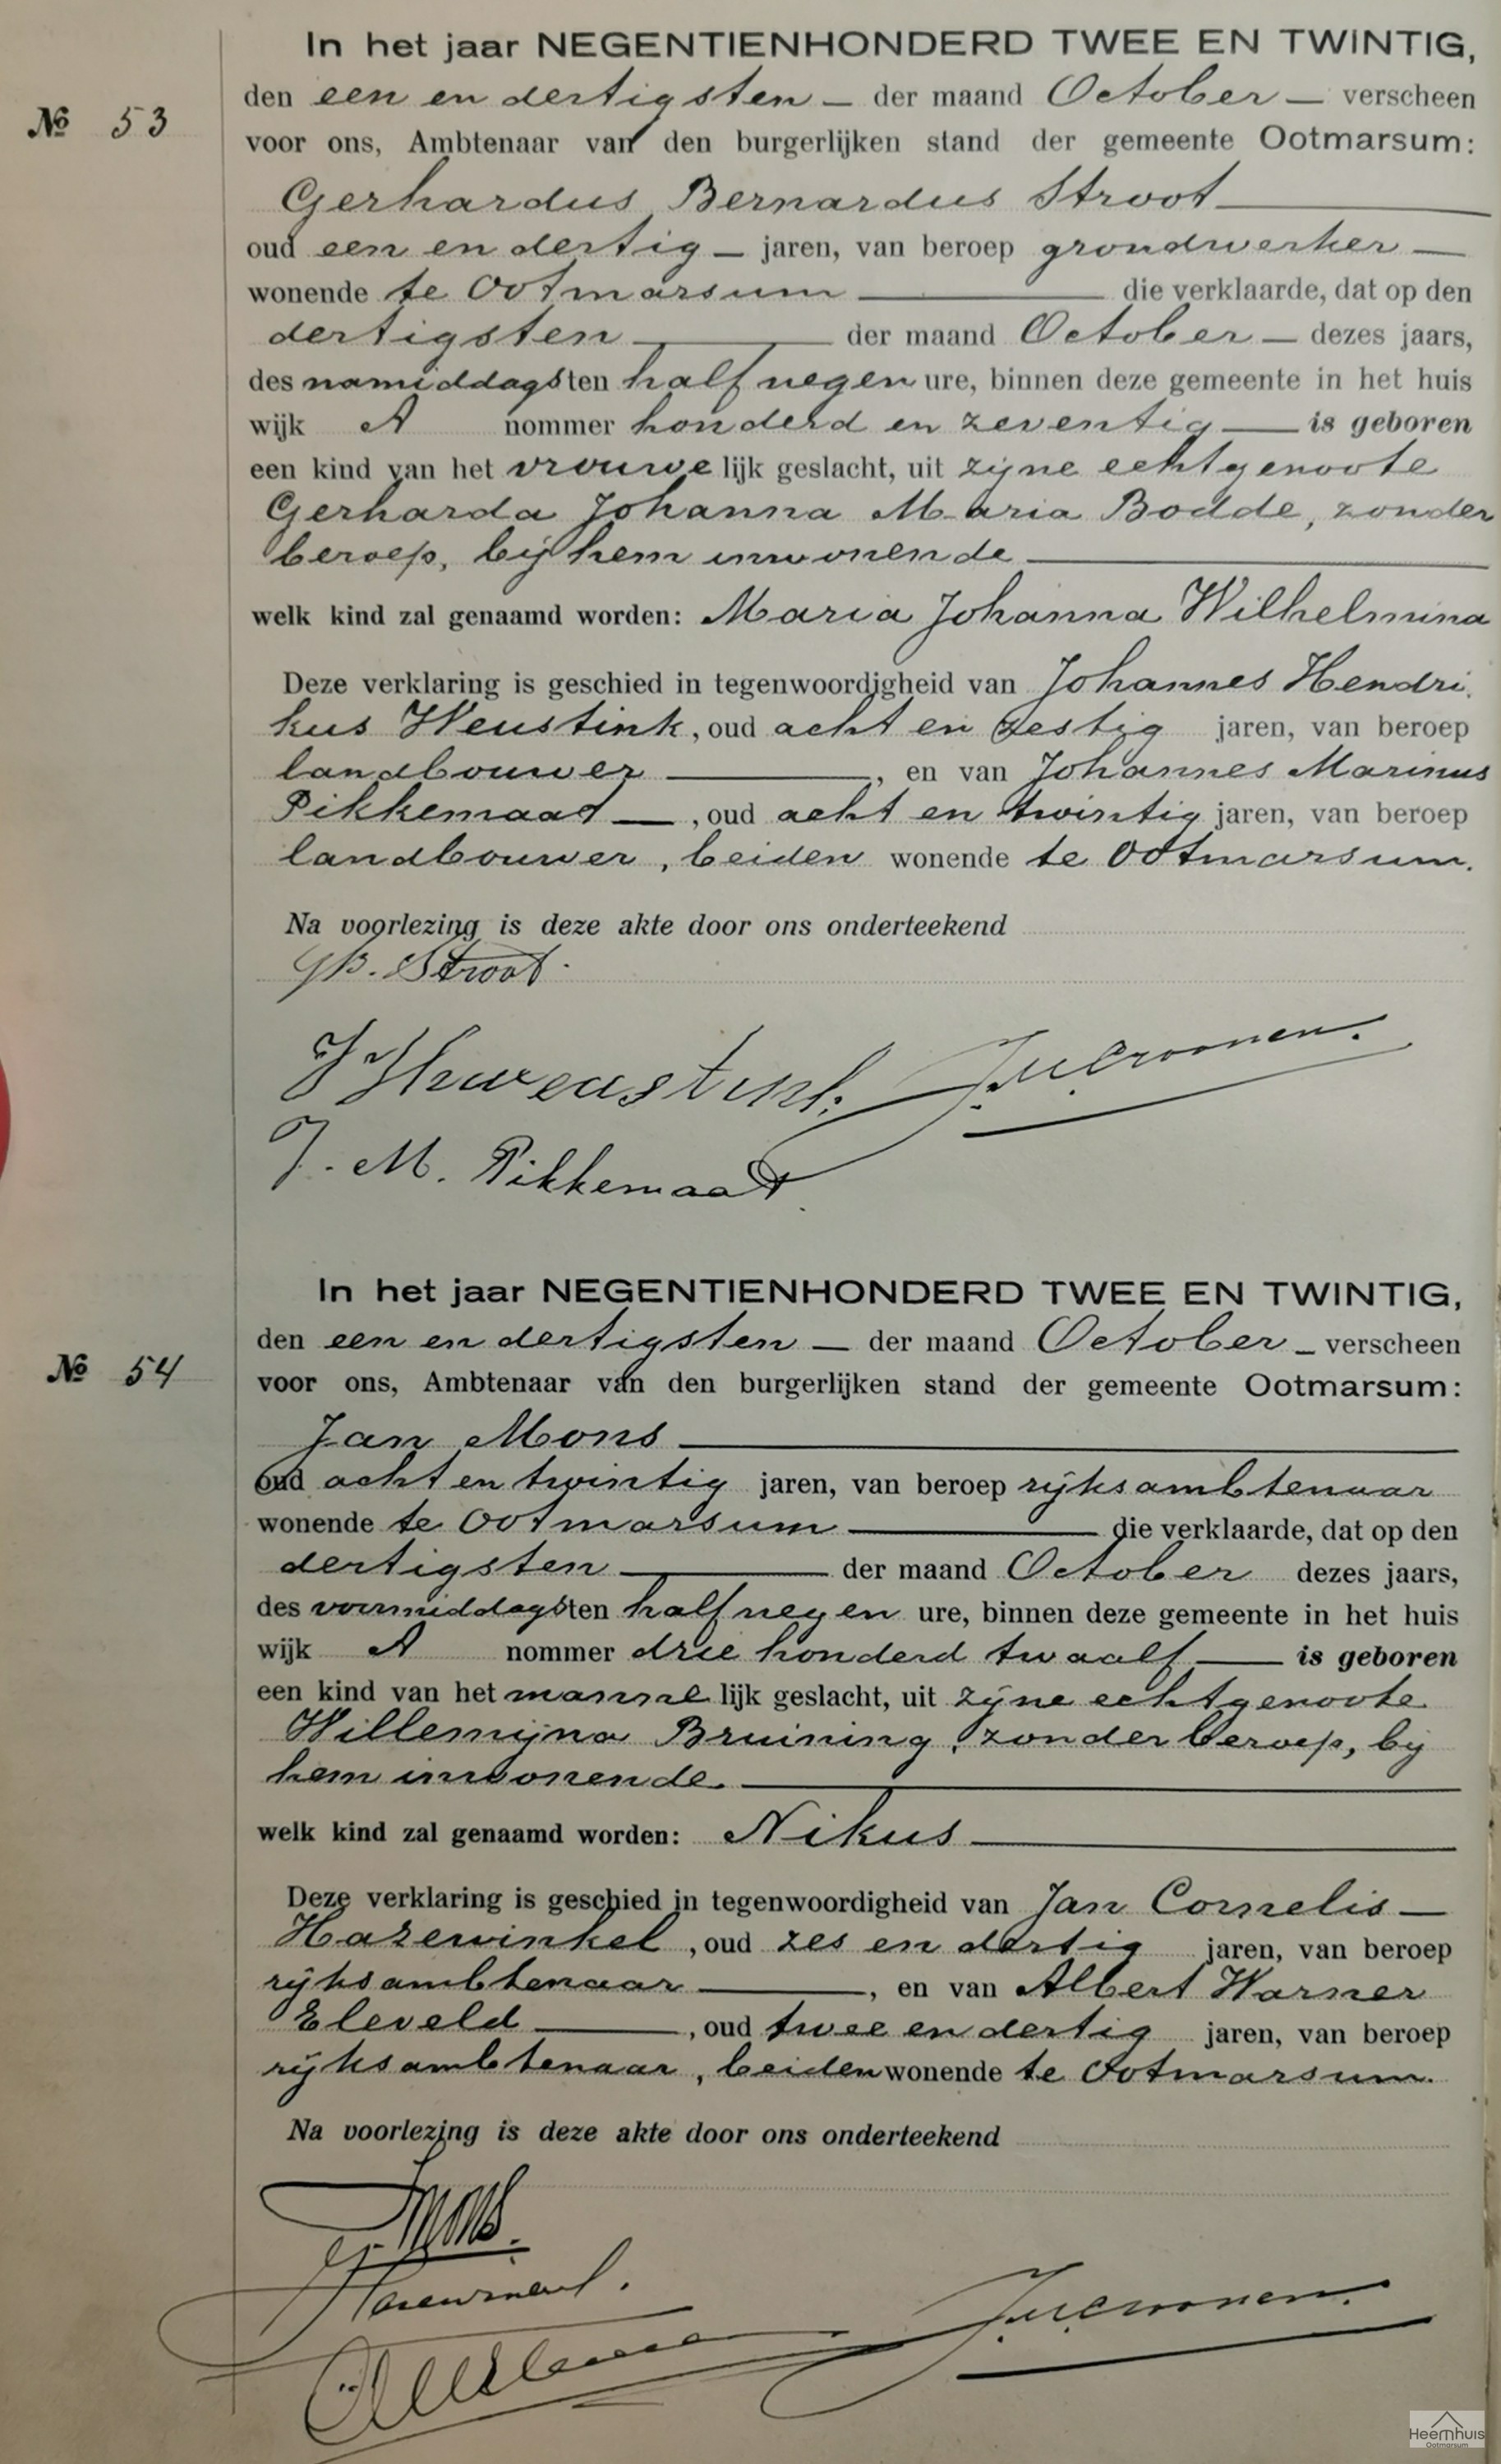 In het jaar NEGENTIENHONDERD TWEE EN TWINTIG,
den een en dertigsten — der maand October — verscheen
№ 53
voor ons, Ambtenaar van den burgerlijken stand der gemeente Ootmarsum:
Gerhardus Bernardus Stroot
oud een en dertig — jaren, van beroep grondwerker —
wonende te Ootmarsum — die verklaarde, dat op den
dertigsten — der maand October — dezes jaars,
des namiddags ten half negen ure, binnen deze gemeente in het huis
wijk A nommer honderd en zeventig — is geboren
een kind van het vrouwelijk geslacht, uit zijne echtgenoote
Gerharda Johanna Maria Bodde, zonder
beroep, bij hem inwonende —
welk kind zal genaamd worden: Maria Johanna Wilhelmina
Deze verklaring is geschied in tegenwoordigheid van Johannes Hendri
kus Weustink, oud acht en zestig jaren, van beroep
landbouwer —, en van Johannes Marinus
Pikkemaat —, oud acht en twintig jaren, van beroep
landbouwer, beiden wonende te Ootmarsum.
Na voorlezing is deze akte door ons onderteekend
GB. Stroot.
J. M. Pikkemaat
In het jaar NEGENTIENHONDERD TWEE EN TWINTIG,
den een en dertigsten — der maand October — verscheen
№ 54
voor ons, Ambtenaar van den burgerlijken stand der gemeente Ootmarsum:
Jan Mons —
oud acht en twintig jaren, van beroep rijksambtenaar
wonende te Ootmarsum — die verklaarde, dat op den
dertigsten — der maand October dezes jaars,
des voormiddags ten half negen ure, binnen deze gemeente in het huis
wijk A nommer drie honderd twaalf — is geboren
een kind van het mannelijk geslacht, uit zijne echtgenoote
Willemijna Bruining, zonder beroep, bij
hem inwonende. —
welk kind zal genaamd worden: Nikus —
Deze verklaring is geschied in tegenwoordigheid van Jan Cornelis —
Hazewinkel, oud zes en dertig jaren, van beroep
rijksambtenaar —, en van Albert Warner
Eleveld —, oud twee en dertig jaren, van beroep
rijksambtenaar, beiden wonende te Ootmarsum.
Na voorlezing is deze akte door ons onderteekend
JMons.
Heemhuis
Ootmarsum